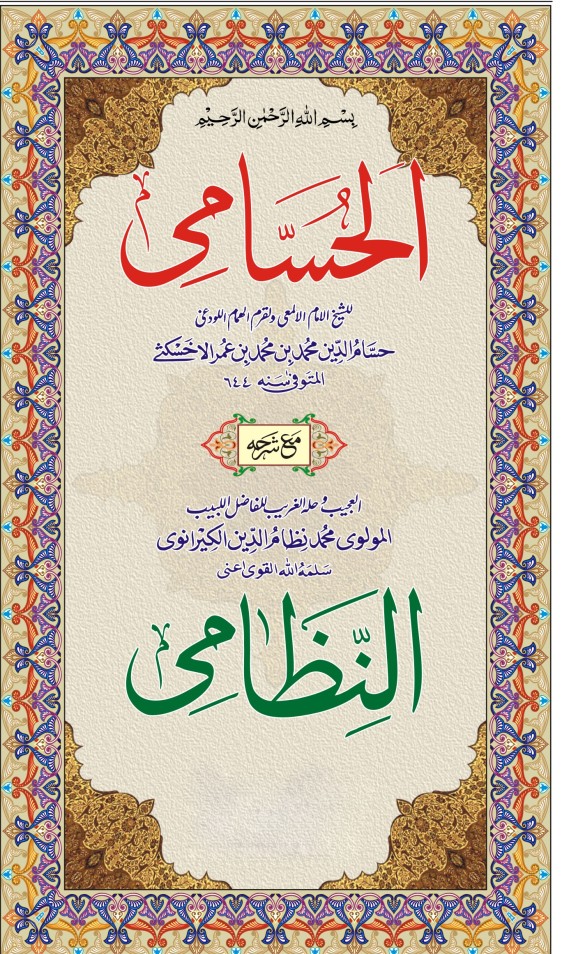 بِسْمِ اللهِ الرَّحْمٰنِ الرَّحِيْمِ
اَلْحُسَّامِى
للشيخ الامام الالمعى ولقرم الهمام اللوذعى
حسامُ الدِّين محمد بن محمد بن عمر الاخسكثے
المتوفیٰ سَنه ٦٤٤
مَع شرحه
العجيب وحله الغريب للفاضل اللبيب
المولوى محمد نظامُ الدِّين الكيرانوى
سَلمهُ الله القوى اعنى
النِّظَامِى